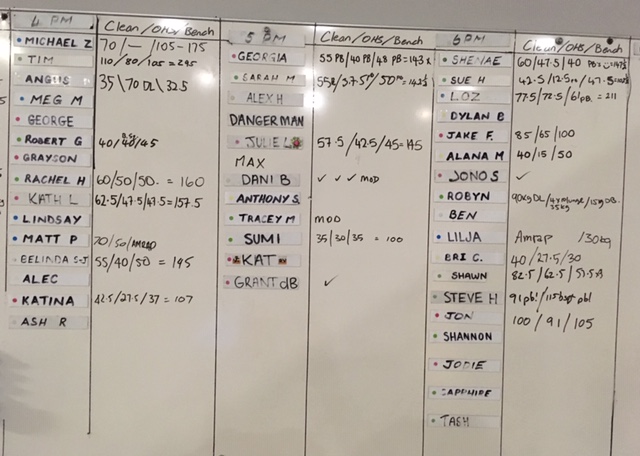 4 PM Clean/OHS/Bench
MICHAEL Z 70/—/105-175
TIM 110/80/105 = 295
ANGUS 35\70 DL\32.5
MEG M
GEORGE
ROBERT G 40/40/45
GRAYSON
RACHEL H 60/50/50. = 160
KATH L 62.5/47.5/47.5=157.5
LINDSAY
MATT P 70/50/AMRAP
BELINDA S-J 55/40/50 = 145
ALEC
KATINA 42.5/27.5/37 = 107
ASH R
5 PM Clean/OHS/Bench
GEORGIA 55 PB/40 PB/48 PB = 143
SARAH M
ALEX H
DANGERMAN
JULIE L 57.5/42.5/45=145
MAX
DANI B ✓ ✓ ✓ MOD
ANTHONY S.
TRACEY M MOD
SUMI 35/30/35 = 100
KAT
GRANT dB ✓
6PM Clean/OHS/Bench
SHENAE 60/47.5/40
SUE H
LOZ 77.5/72.5/61PB. = 211
DYLAN B
JAKE F. 85/65/100
ALANA M 40/15/50
JONO S ✓
ROBYN 90kg DL
BEN
LILJA Amrap /30kg
BRI C. 40/27.5/30
SHAWN 82.5/62.5/57.5
STEVE H
JON 100/91/105
SHANNON
JODIE
SAPPHIRE
TASH